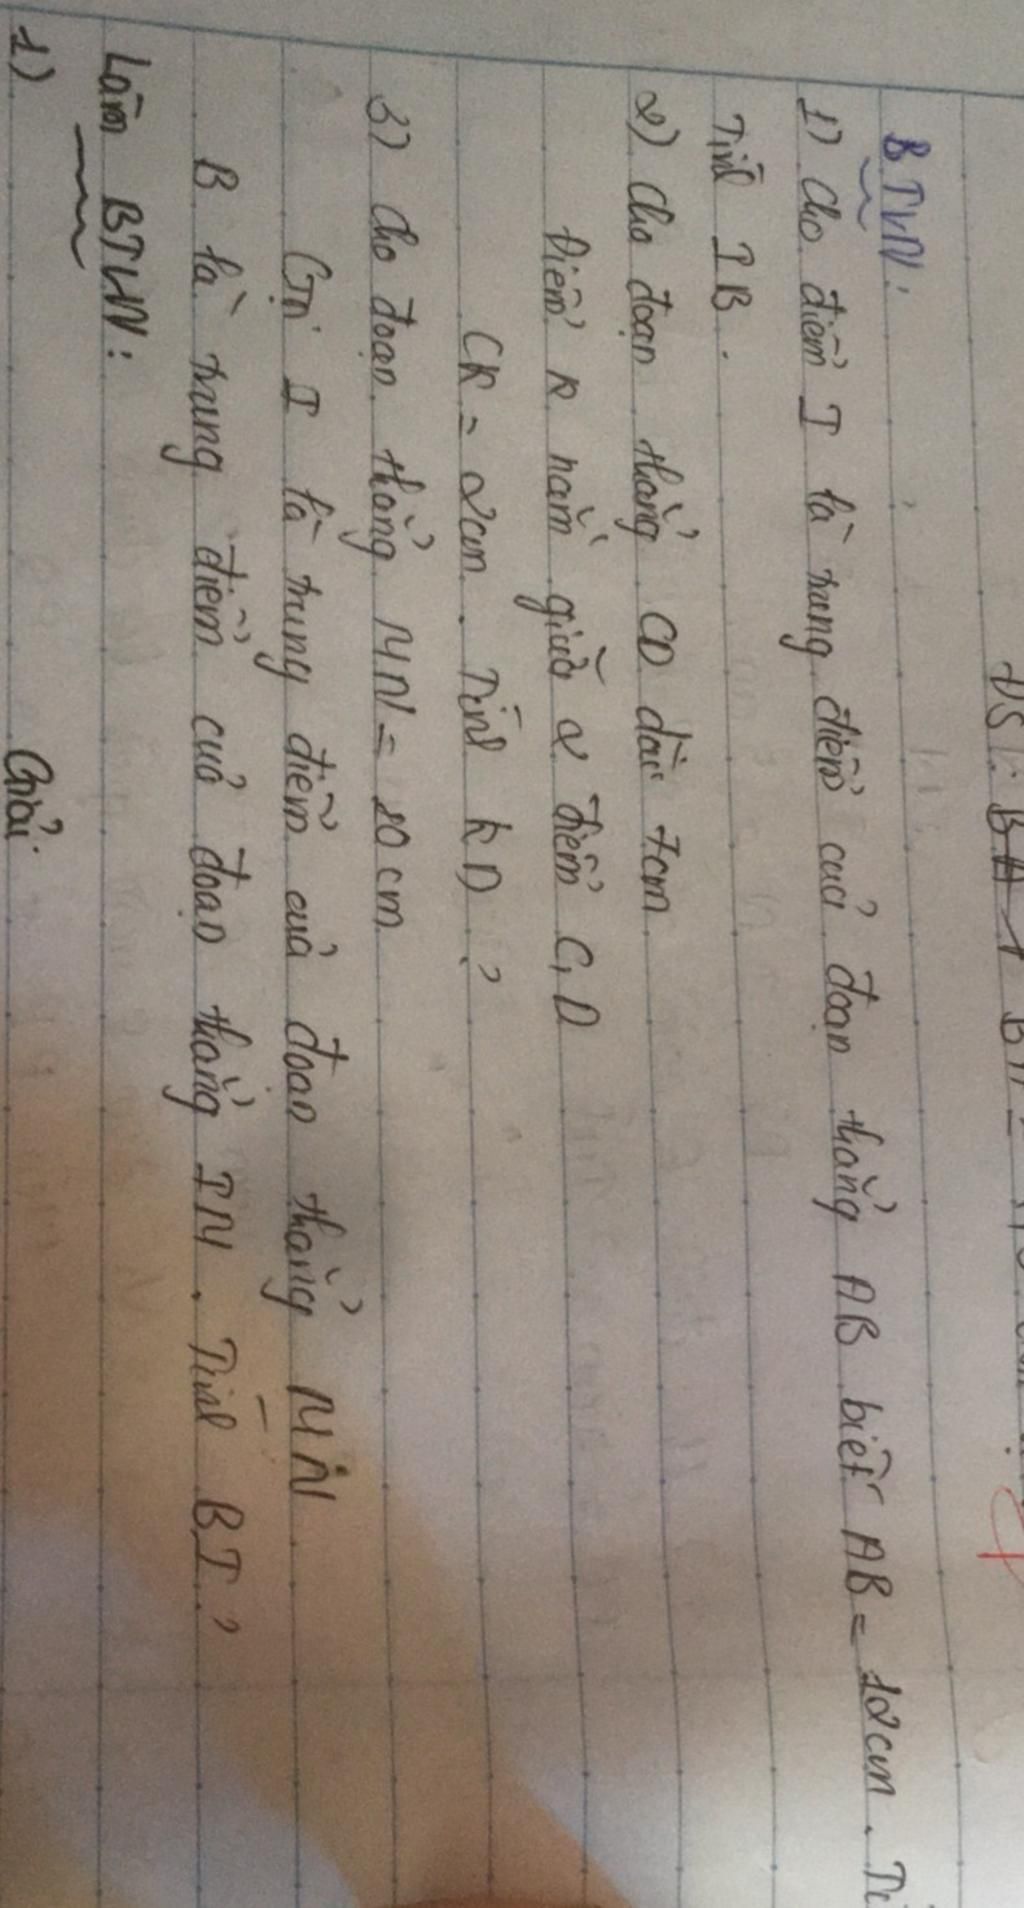 ĐS:
BTVN:
1) Cho điểm I là trung điểm của đoạn thẳng AB biết AB = 12cm.
Tính IB.
2) Cho đoạn thẳng CD dài 7cm
Điểm K nằm giữa 2 điểm C, D
CK = 2cm. Tính KD?
3) Cho đoạn thẳng MN = 20cm
Gọi I là trung điểm của đoạn thẳng MN
B là trung điểm của đoạn thẳng IM. Tính BI?
Làm BTVN:
1) Giải